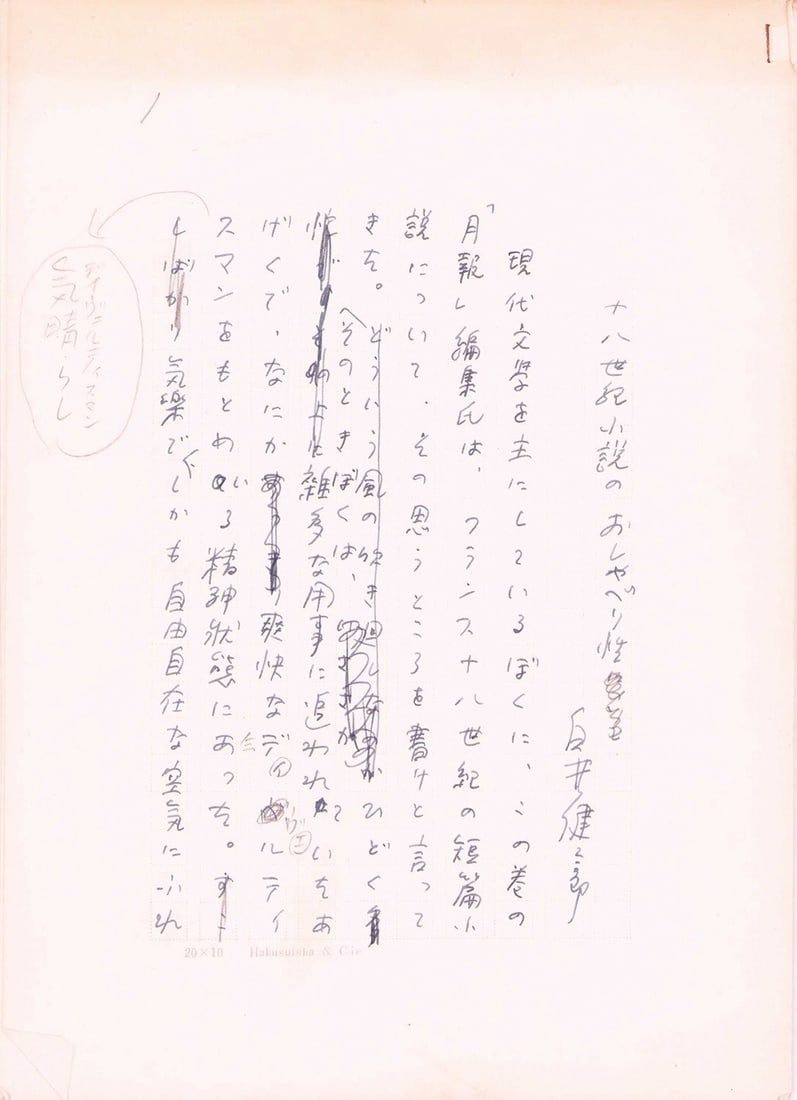 十八世紀小説のおしゃべり性
白井健三郎
現代文学を主にしているぼくに、この巻の
「月報」編集氏は、フランス十八世紀の短篇小
説について、その思うところを書けと言って
きた。どういう風の吹き廻しなのかひどく
そのときぼくは、
雑多な用事に追われていたあ
げくで、なにか爽快なディヴェルティ
スマンをもとめている精神状態にあった。
しばかり気楽で、しかも自由自在な空気にふれ
ディヴェルティスマン
気晴らし
20×10 Hakusuisha & Cie